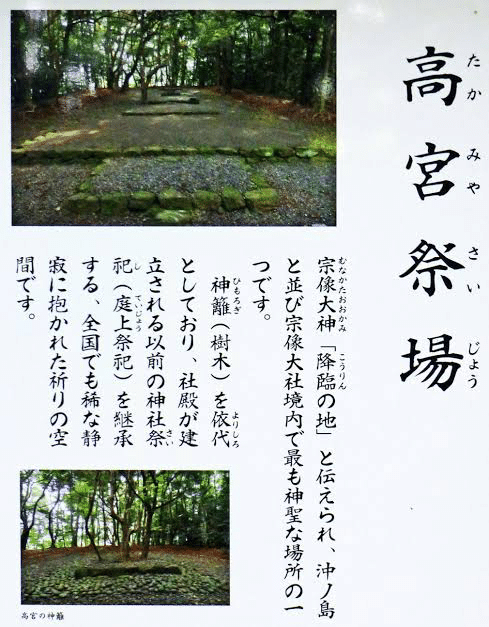 高宮祭場
たかみやさいじょう
宗像大神「降臨の地」と伝えられ、沖ノ島
むなかたおおかみ
こうりん
と並び宗像大社境内で最も神聖な場所の一
つです。
神籬(樹木)を依代
ひもろぎ
よりしろ
としており、社殿が建
立される以前の神社祭
さい
祀(庭上祭祀)を継承
し
ていじょう
する、全国でも稀な静
寂に抱かれた祈りの空
間です。
高宮の神籬